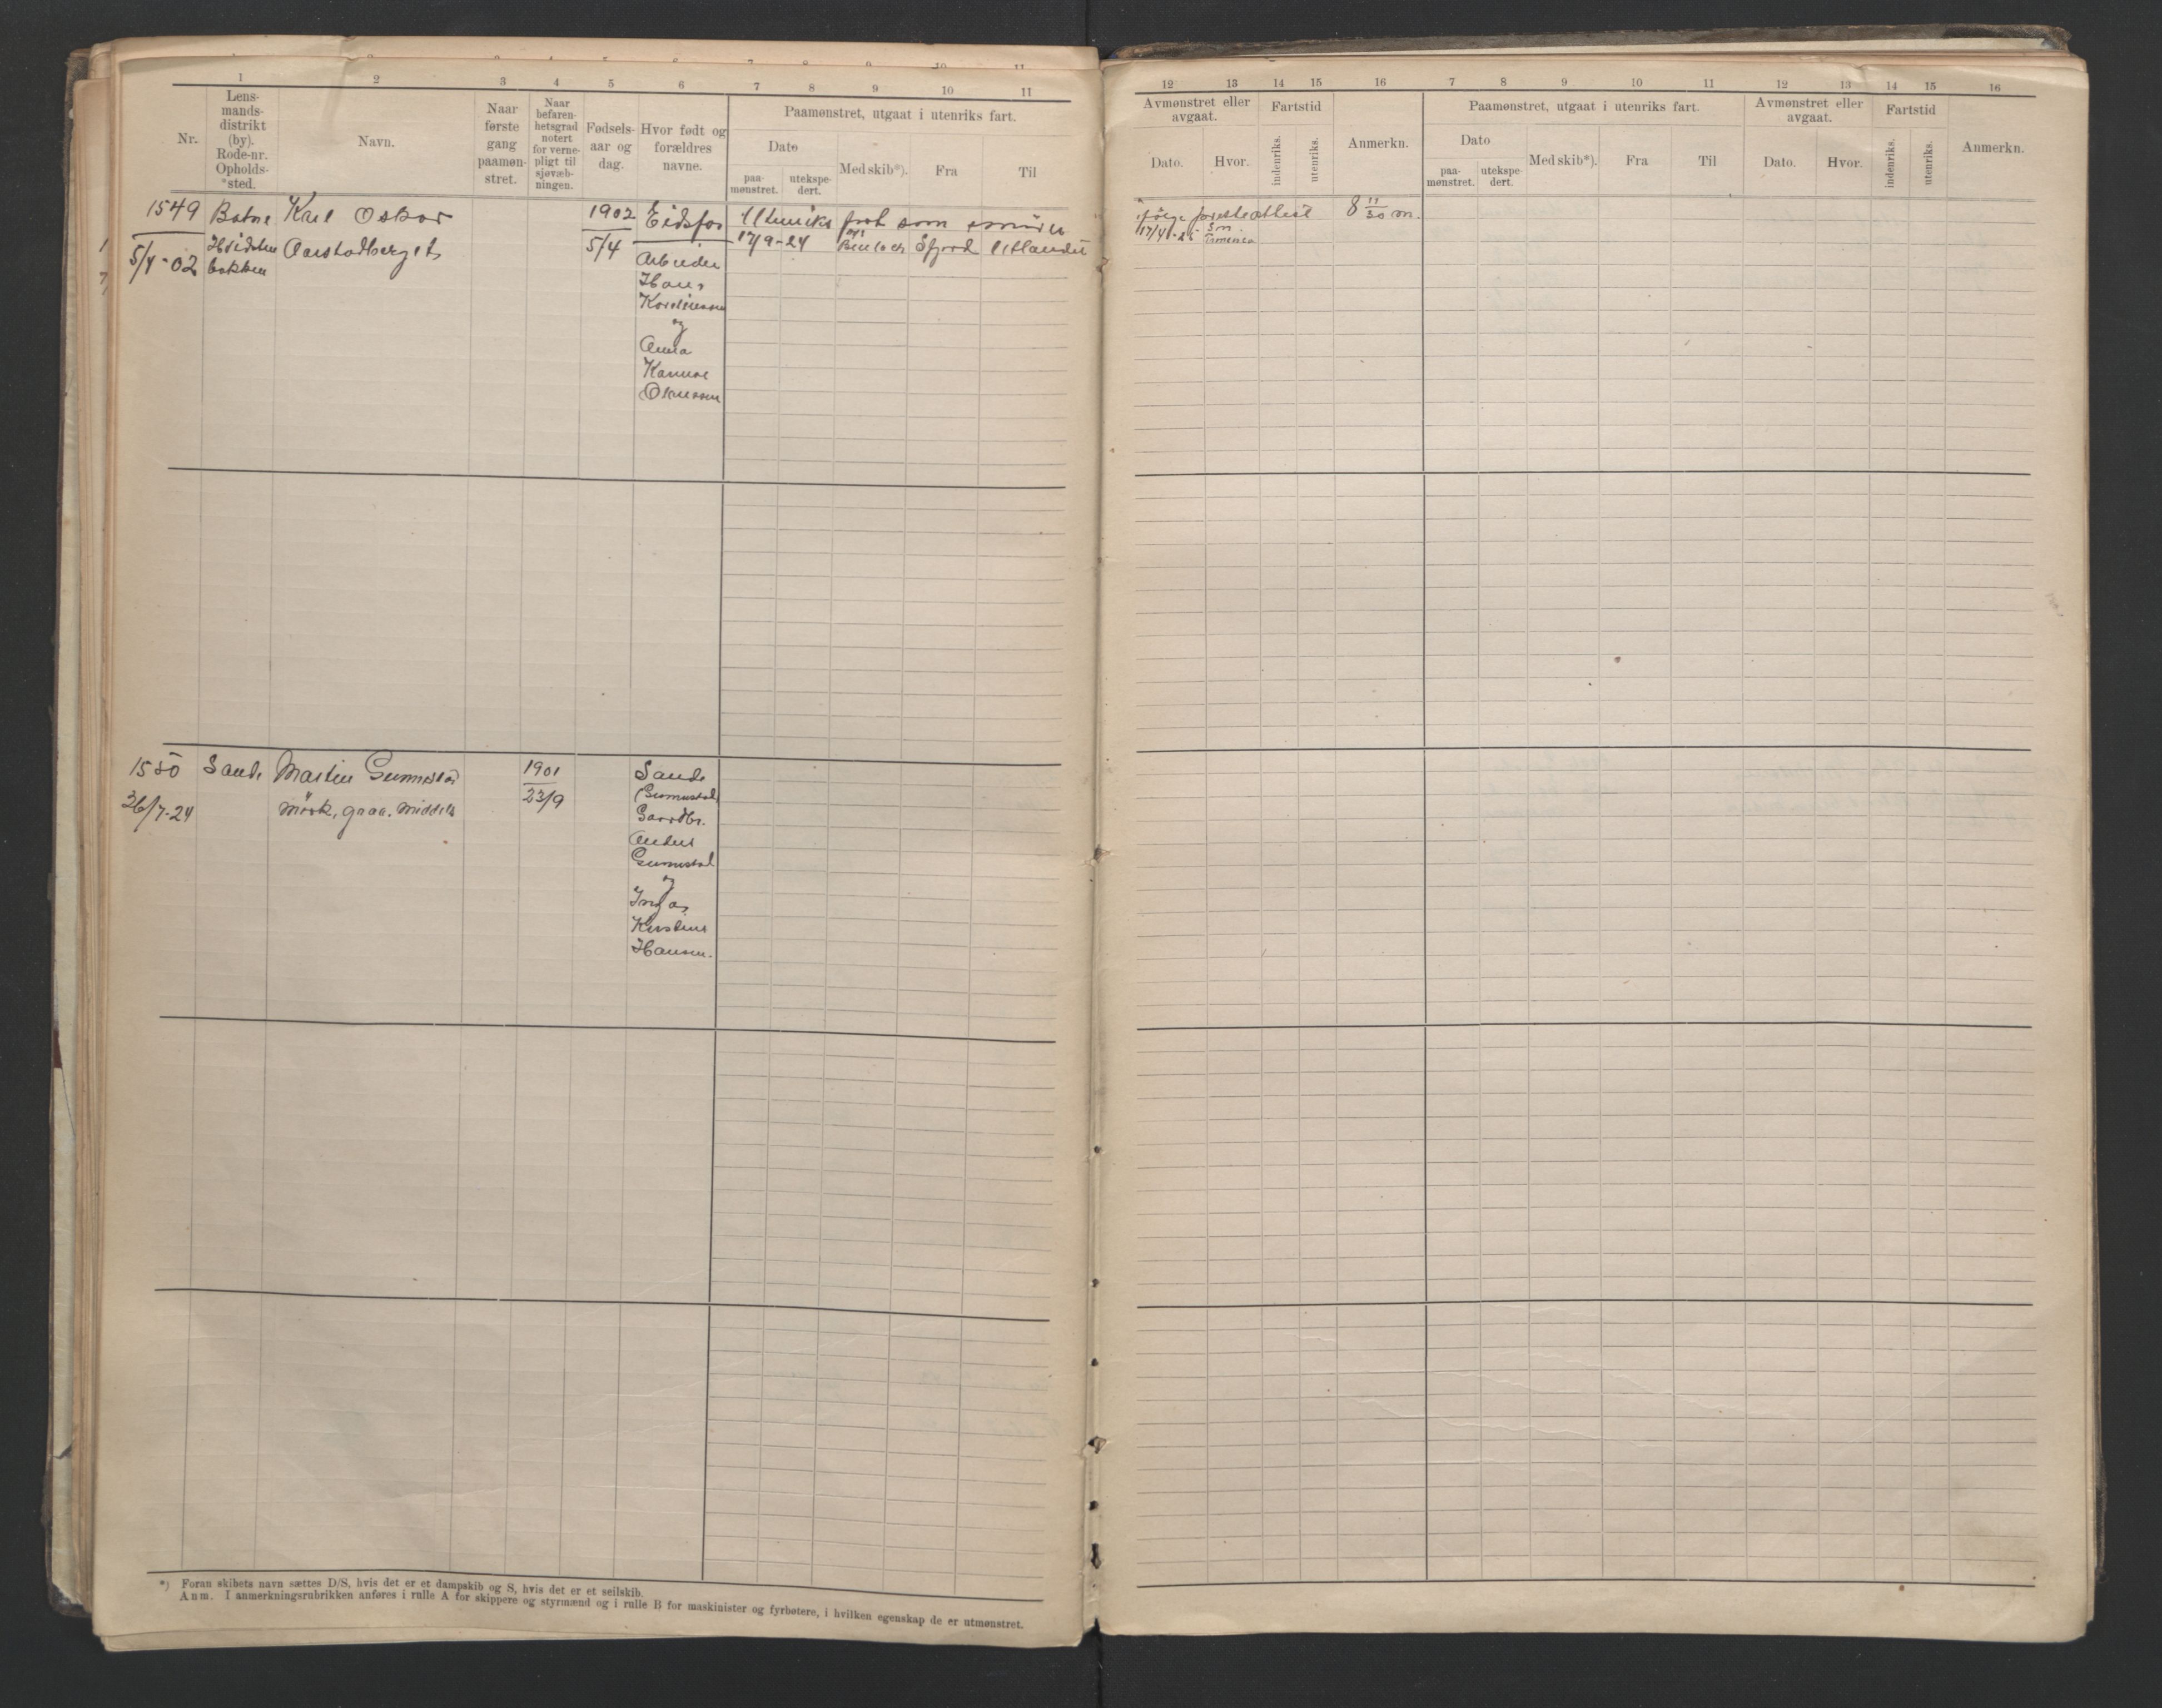 1 2 3 4 5 6 7 8 9 10 11
Nr.
Lens-
mands-
distrikt
(by).
Rode-nr.
Opholds-
*sted.
Navn.
Naar
første
gang
paamøn-
stret.
Naar
befaren-
hetsgrad
notert
for verne-
pligt til
sjøvæb-
ningen.
Fødsels-
aar og
dag.
Hvor født og
forældres
navne.
Paamønstret, utgaat i utenriks fart.
Dato
paa-
mønstret.
utekspe-
dert.
Med skib*).
Fra
Til
1549
5/4-02
Botne
bakken
Karl Oskar
1902
5/4
Eidsfos
Arbeider
Hans
og
Anna
Utenriks fart som
17/9-24
Sfjord Utlandet
1550
26/7-24
Sande
Martin
Mörk, graa. Middels
1901
23/9
Sande
Gaardbr.
og
Hansen.
*) Foran skibets navn sættes D/S, hvis det er et dampskib og S, hvis det er et seilskib.
Anm. I anmerkningsrubrikken anføres i rulle A for skippere og styrmænd og i rulle B for maskinister og fyrbøtere, i hvilken egenskap de er utmønstret.
12 13 14 15 16 7 8 9 10 11 12 13 14 15 16
Avmønstret eller
avgaat.
Dato.
Hvor.
Fartstid
indenriks.
utenriks.
Anmerkn.
Paamønstret, utgaat i utenriks fart.
Dato
paa-
mønstret.
utekspe-
dert.
Med skib*).
Fra
Til
Avmønstret eller
avgaat.
Dato.
Hvor.
Fartstid
indenriks.
utenriks.
Anmerkn.
8 11/30 m.